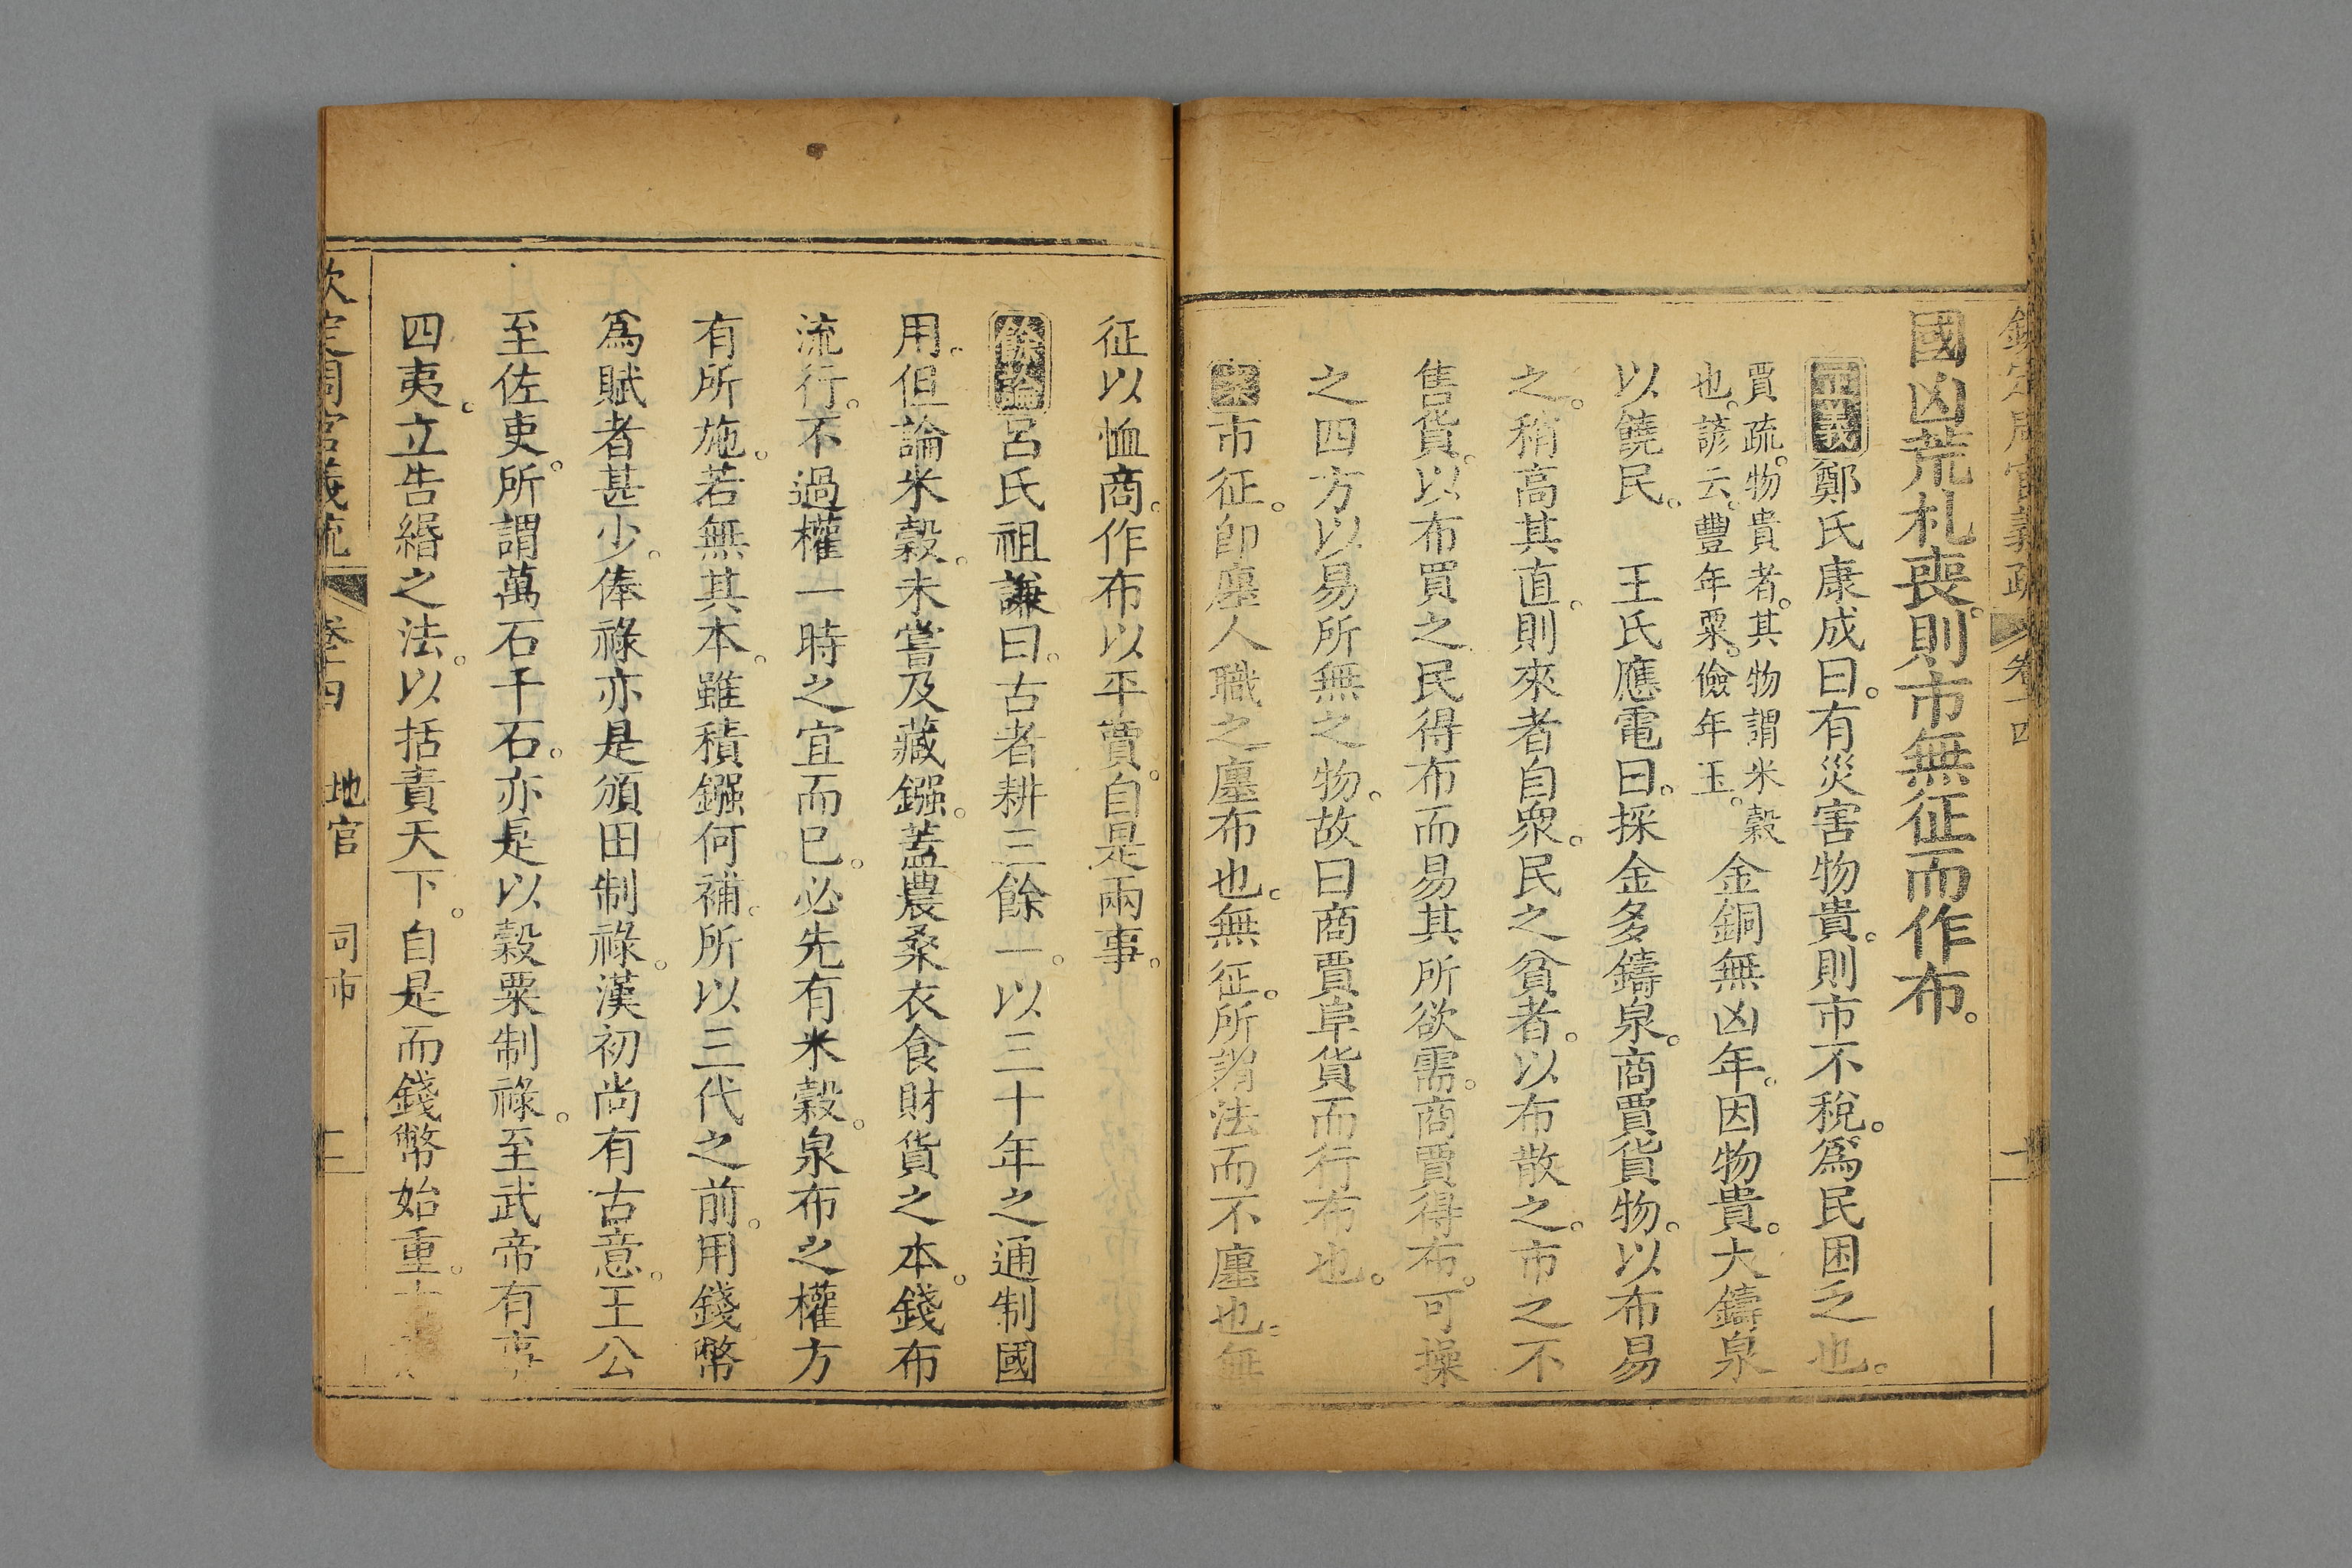 欽定周官義疏 卷十四
國凶荒札喪。則市無征而作布。
正義鄭氏康成曰。有災害物貴。則市不稅。爲民困乏也。
賈疏。物貴者。其物謂米穀
也。諺云。豐年粟。儉年玉。
金銅無凶年。因物貴。大鑄泉
以饒民。 王氏應電曰。採金多鑄泉。商賈貨物。以布易
之。稍高其直。則來者自衆。民之貧者。以布散之。市之不
售貨。以布買之民得布而易其所欲需。商賈得布。可操
之四方以易所無之物。故曰商賈阜貨而行布也。
案市征。卽廛人職之廛布也。無征。所謂法而不廛也。無
征以恤商。作布以平賈。自是兩事。
餘論呂氏祖謙曰。古者耕三餘一。以三十年之通制國
用。但論米穀。未嘗及藏鏹。蓋農桑衣食財貨之本。錢布
流行。不過權一時之宜而已。必先有米穀。泉布之權方
有所施。若無其本。雖積鏹何補。所以三代之前。用錢幣
爲賦者甚少。俸祿亦是頒田制祿。漢初尚有古意。王公
至佐吏。所謂萬石千石。亦是以穀粟制祿。至武帝有事
四夷。立告緡之法。以括責天下。自是而錢幣始重。
欽定周官義疏 卷十四 地官 司市 二